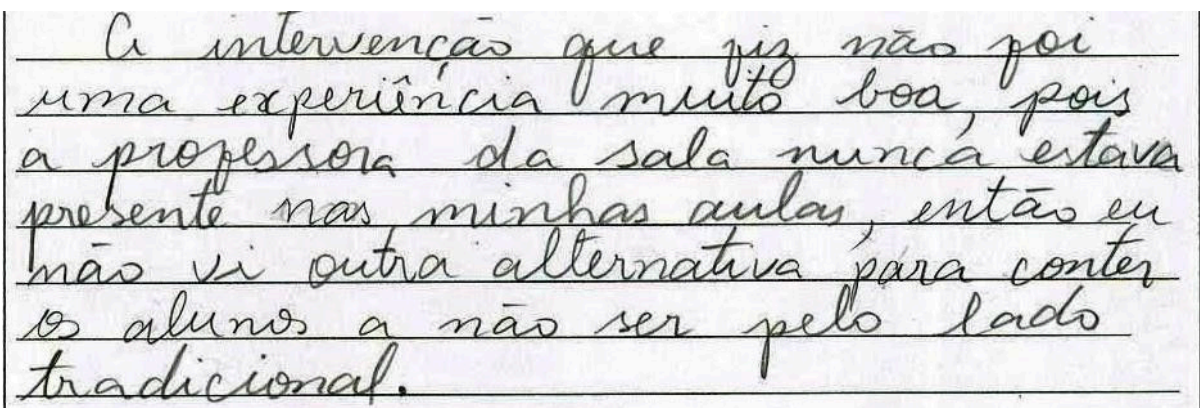 A intervenção que fiz não foi
uma experiência muito boa, pois
a professora da sala nunca estava
presente nas minhas aulas, então eu
não vi outra alternativa para conter
os alunos a não ser pelo lado
tradicional.